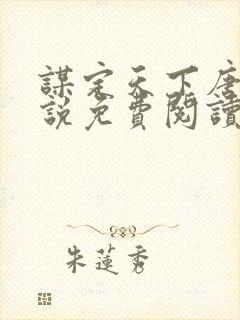 謀定天下唐
說免費閱讀
朱蓮秀